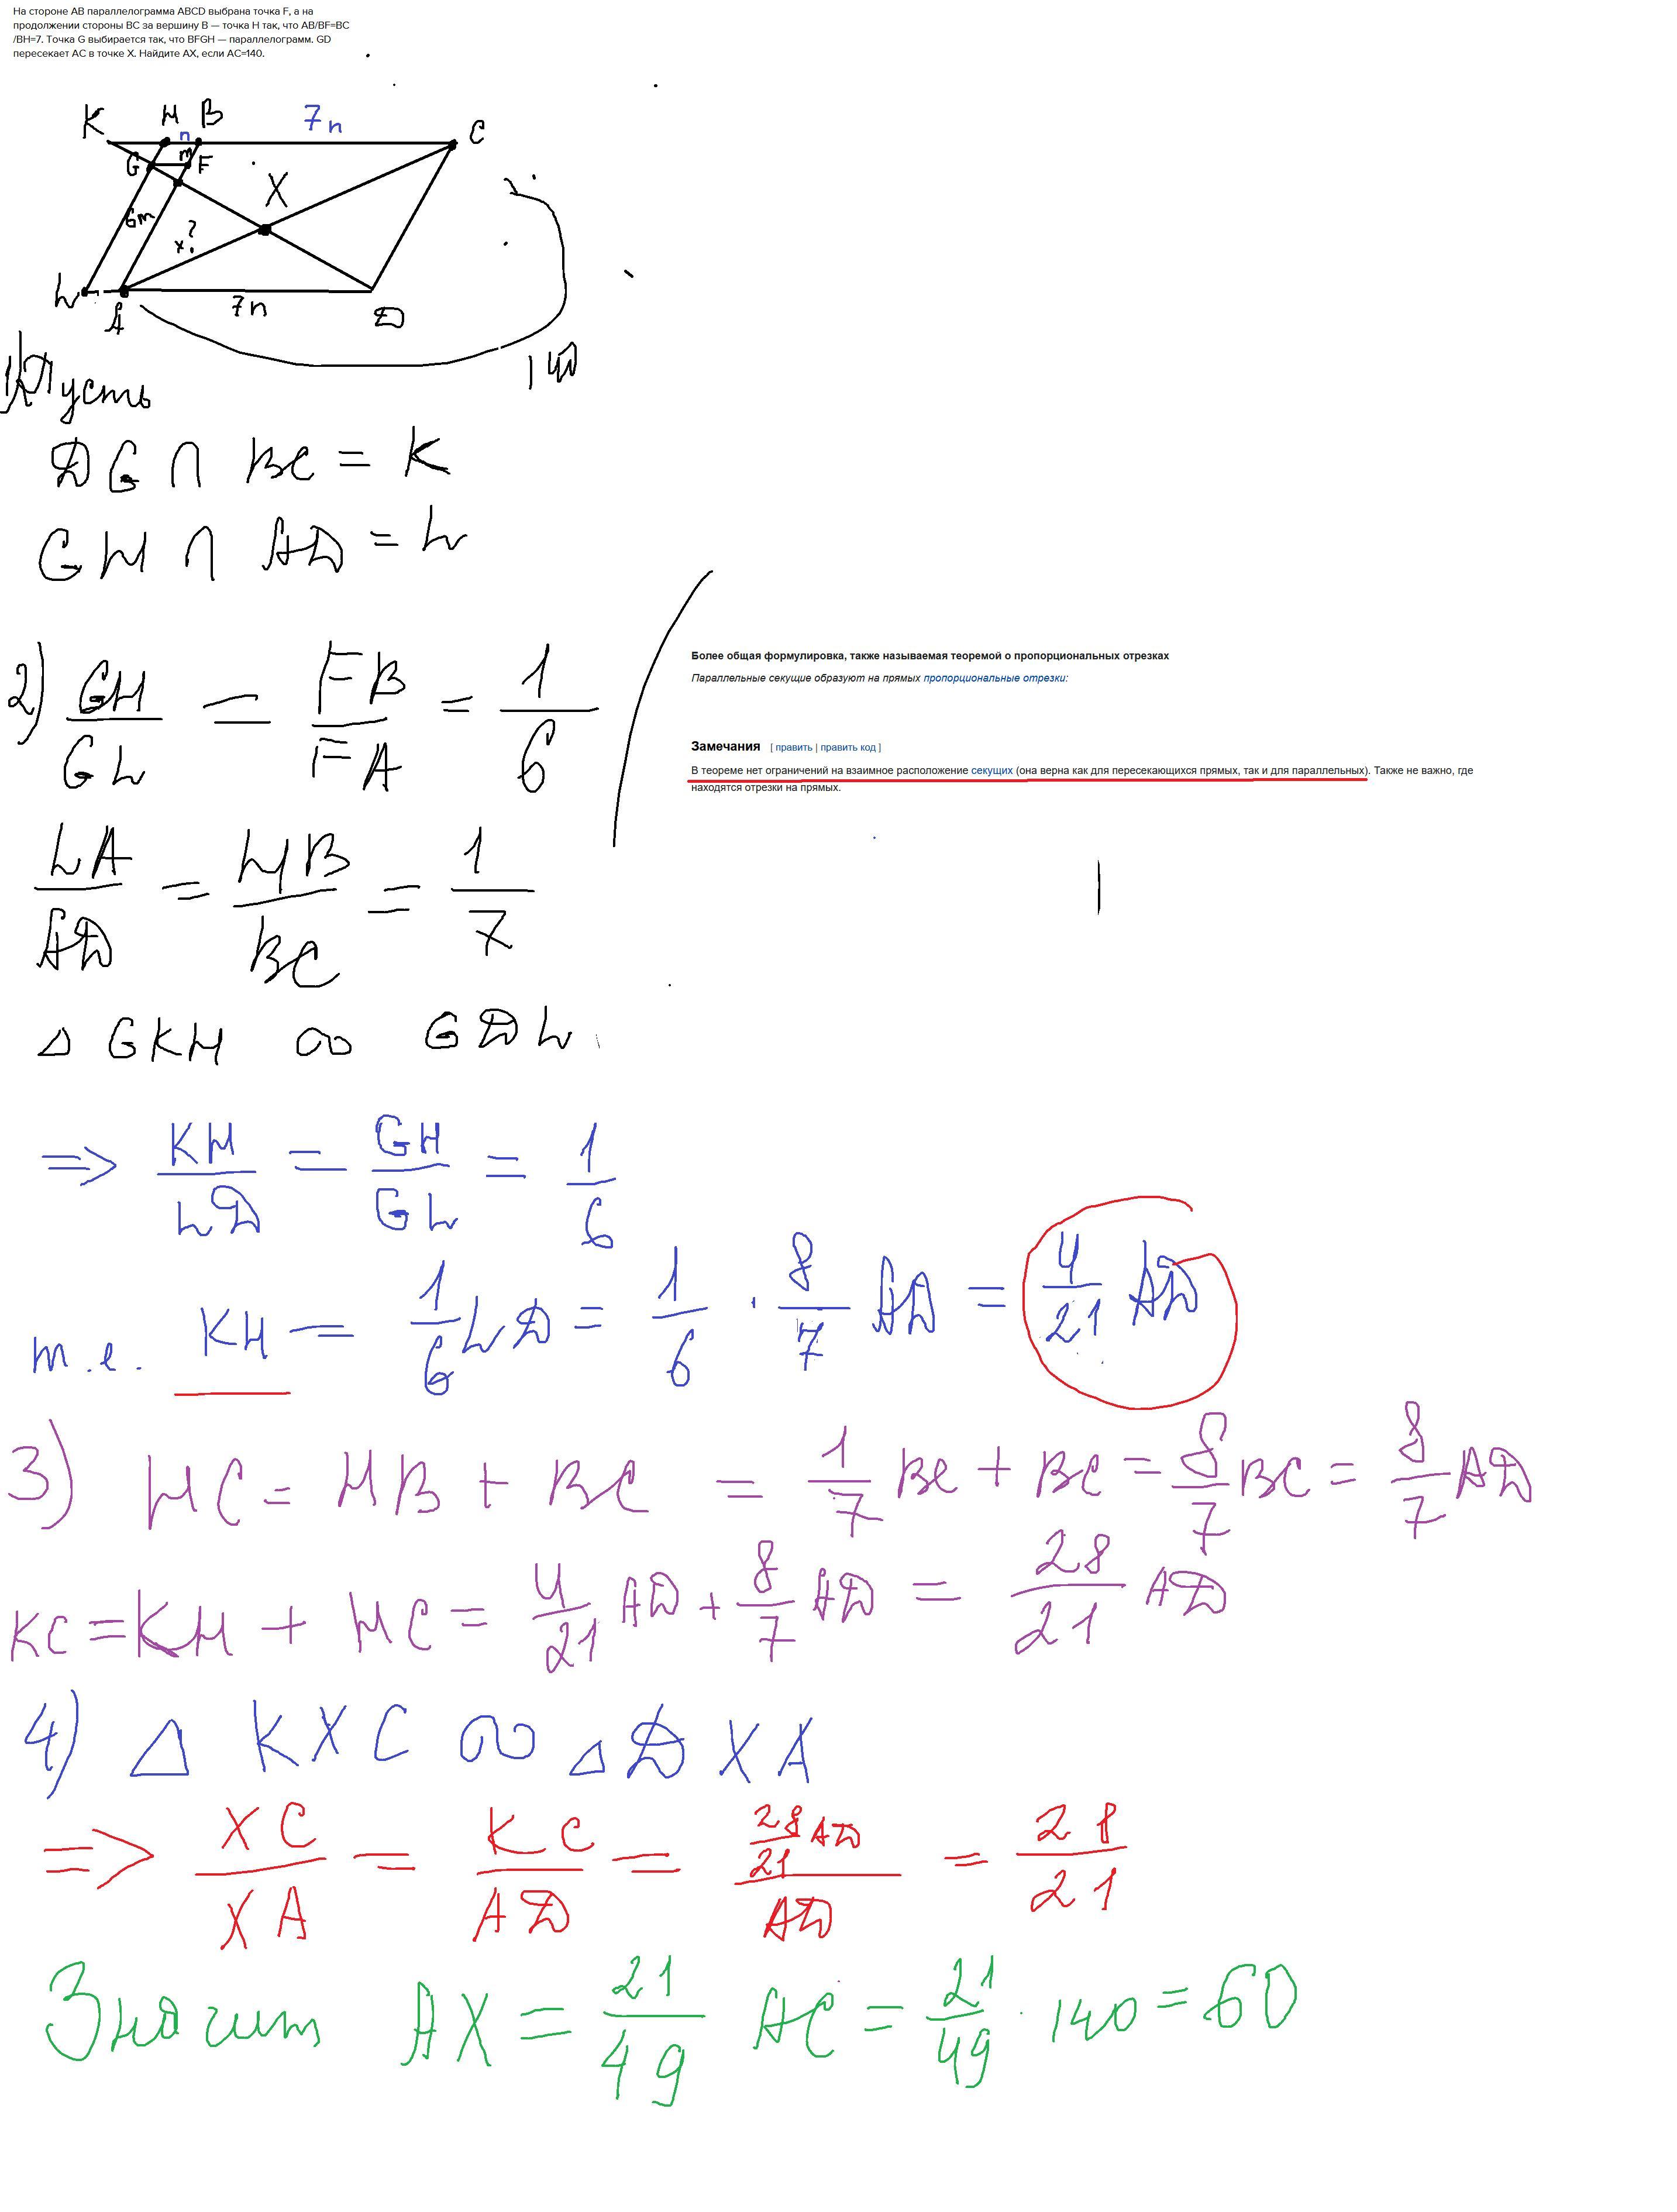 На стороне AB параллелограмма ABCD выбрана точка F, а на
продолжении стороны BC за вершину B — точка H так, что AB/BF=BC
/BH=7. Точка G выбирается так, что BFGH — параллелограмм. GD
пересекает AC в точке X. Найдите AX, если AC=140.
K H B 7n C
n
G m F
X
6m
x?
L A 7n D
140
1) Пусть
DG ∩ BC = K
GH ∩ AD = L
2) GH/GL = FB/FA = 1/6
Более общая формулировка, также называемая теоремой о пропорциональных отрезках
Параллельные секущие образуют на прямых пропорциональные отрезки:
Замечания [ править | править код ]
В теореме нет ограничений на взаимное расположение секущих (она верна как для пересекающихся прямых, так и для параллельных). Также не важно, где
находятся отрезки на прямых.
LA/AD = HB/BC = 1/7
△ GKH ∞ GDL
=> KH/LD = GH/GL = 1/6
т.е. KH = 1/6 LD = 1/6 · 8/7 AD = 4/21 AD
3) HC = HB + BC = 1/7 BC + BC = 8/7 BC = 8/7 AD
KC = KH + HC = 4/21 AD + 8/7 AD = 28/21 AD
4) △ KXC ∞ △ DXA
=> XC/XA = KC/AD = 28/21 AD/AD = 28/21
Значит AX = 21/49 AC = 21/49 · 140 = 60